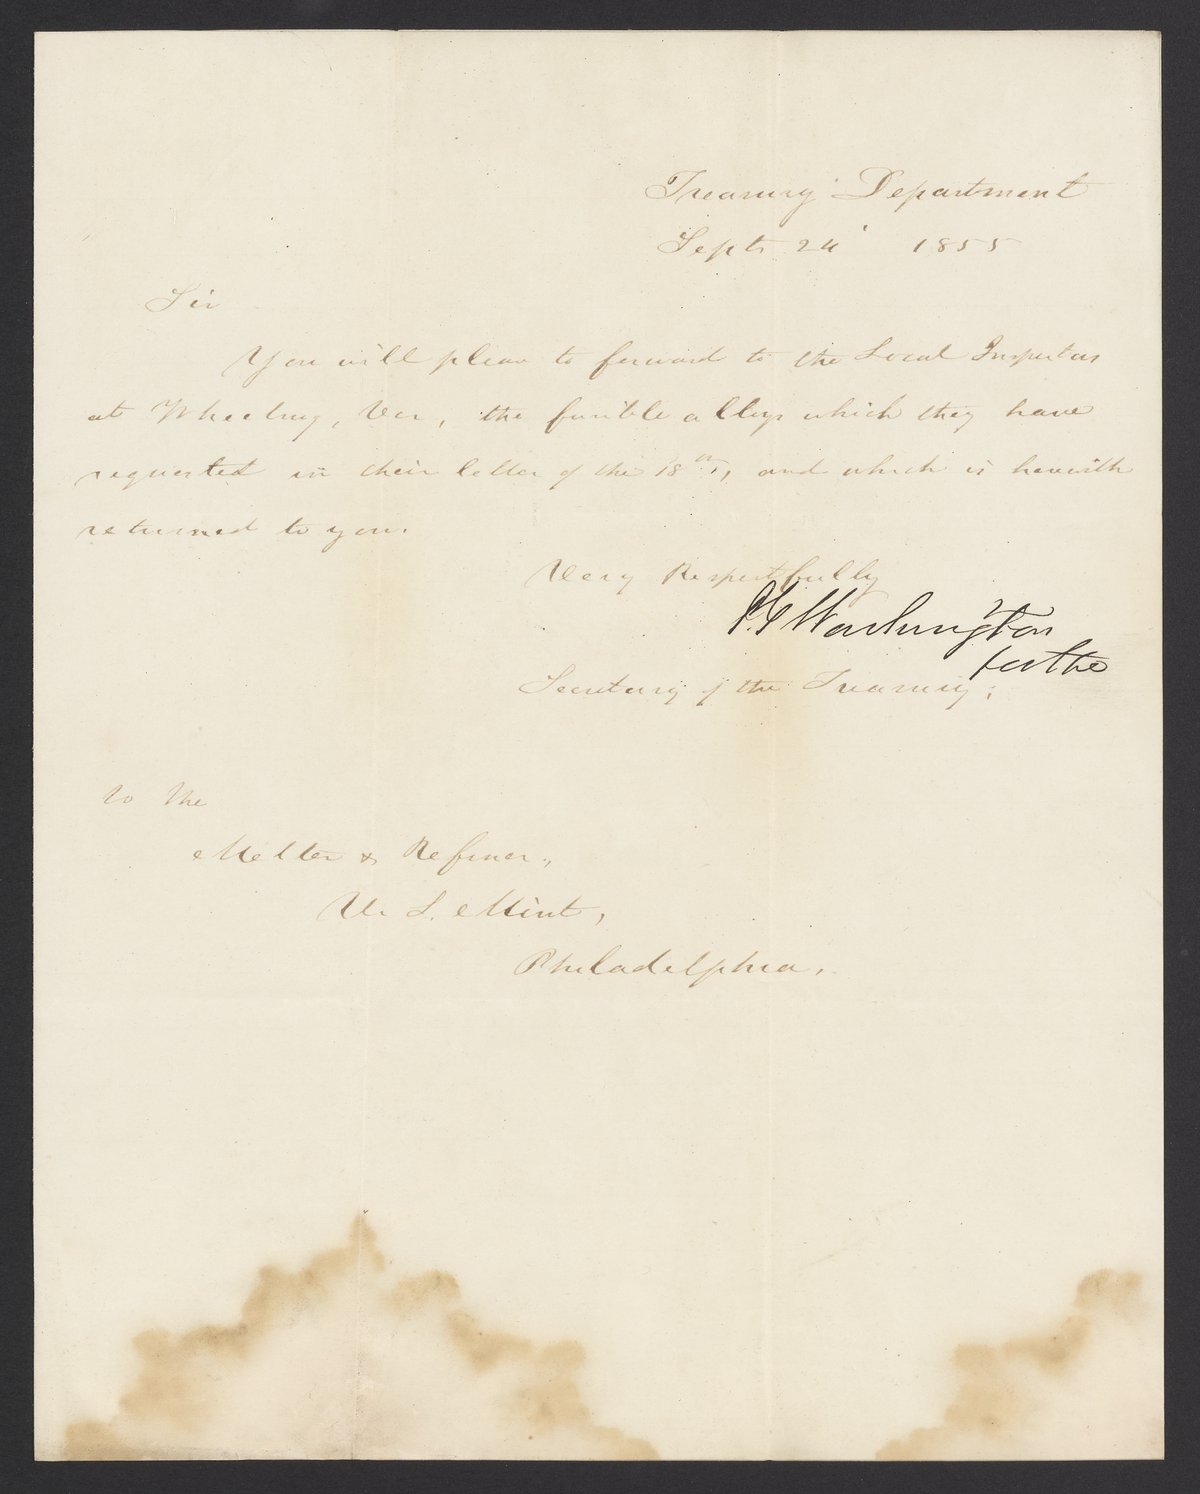 Treasury Department
Sept. 24' 1855
Sir
You will please to forward to the Local Inspectors
at Wheeling, Va, the fusible alloys which they have
requested in their letter of the 18th, and which is herewith
returned to you.
Very Respectfully
P.G Washington
for the
Secretary of the Treasury.
To the
Melter & Refiner,
U. S. Mint,
Philadelphia.